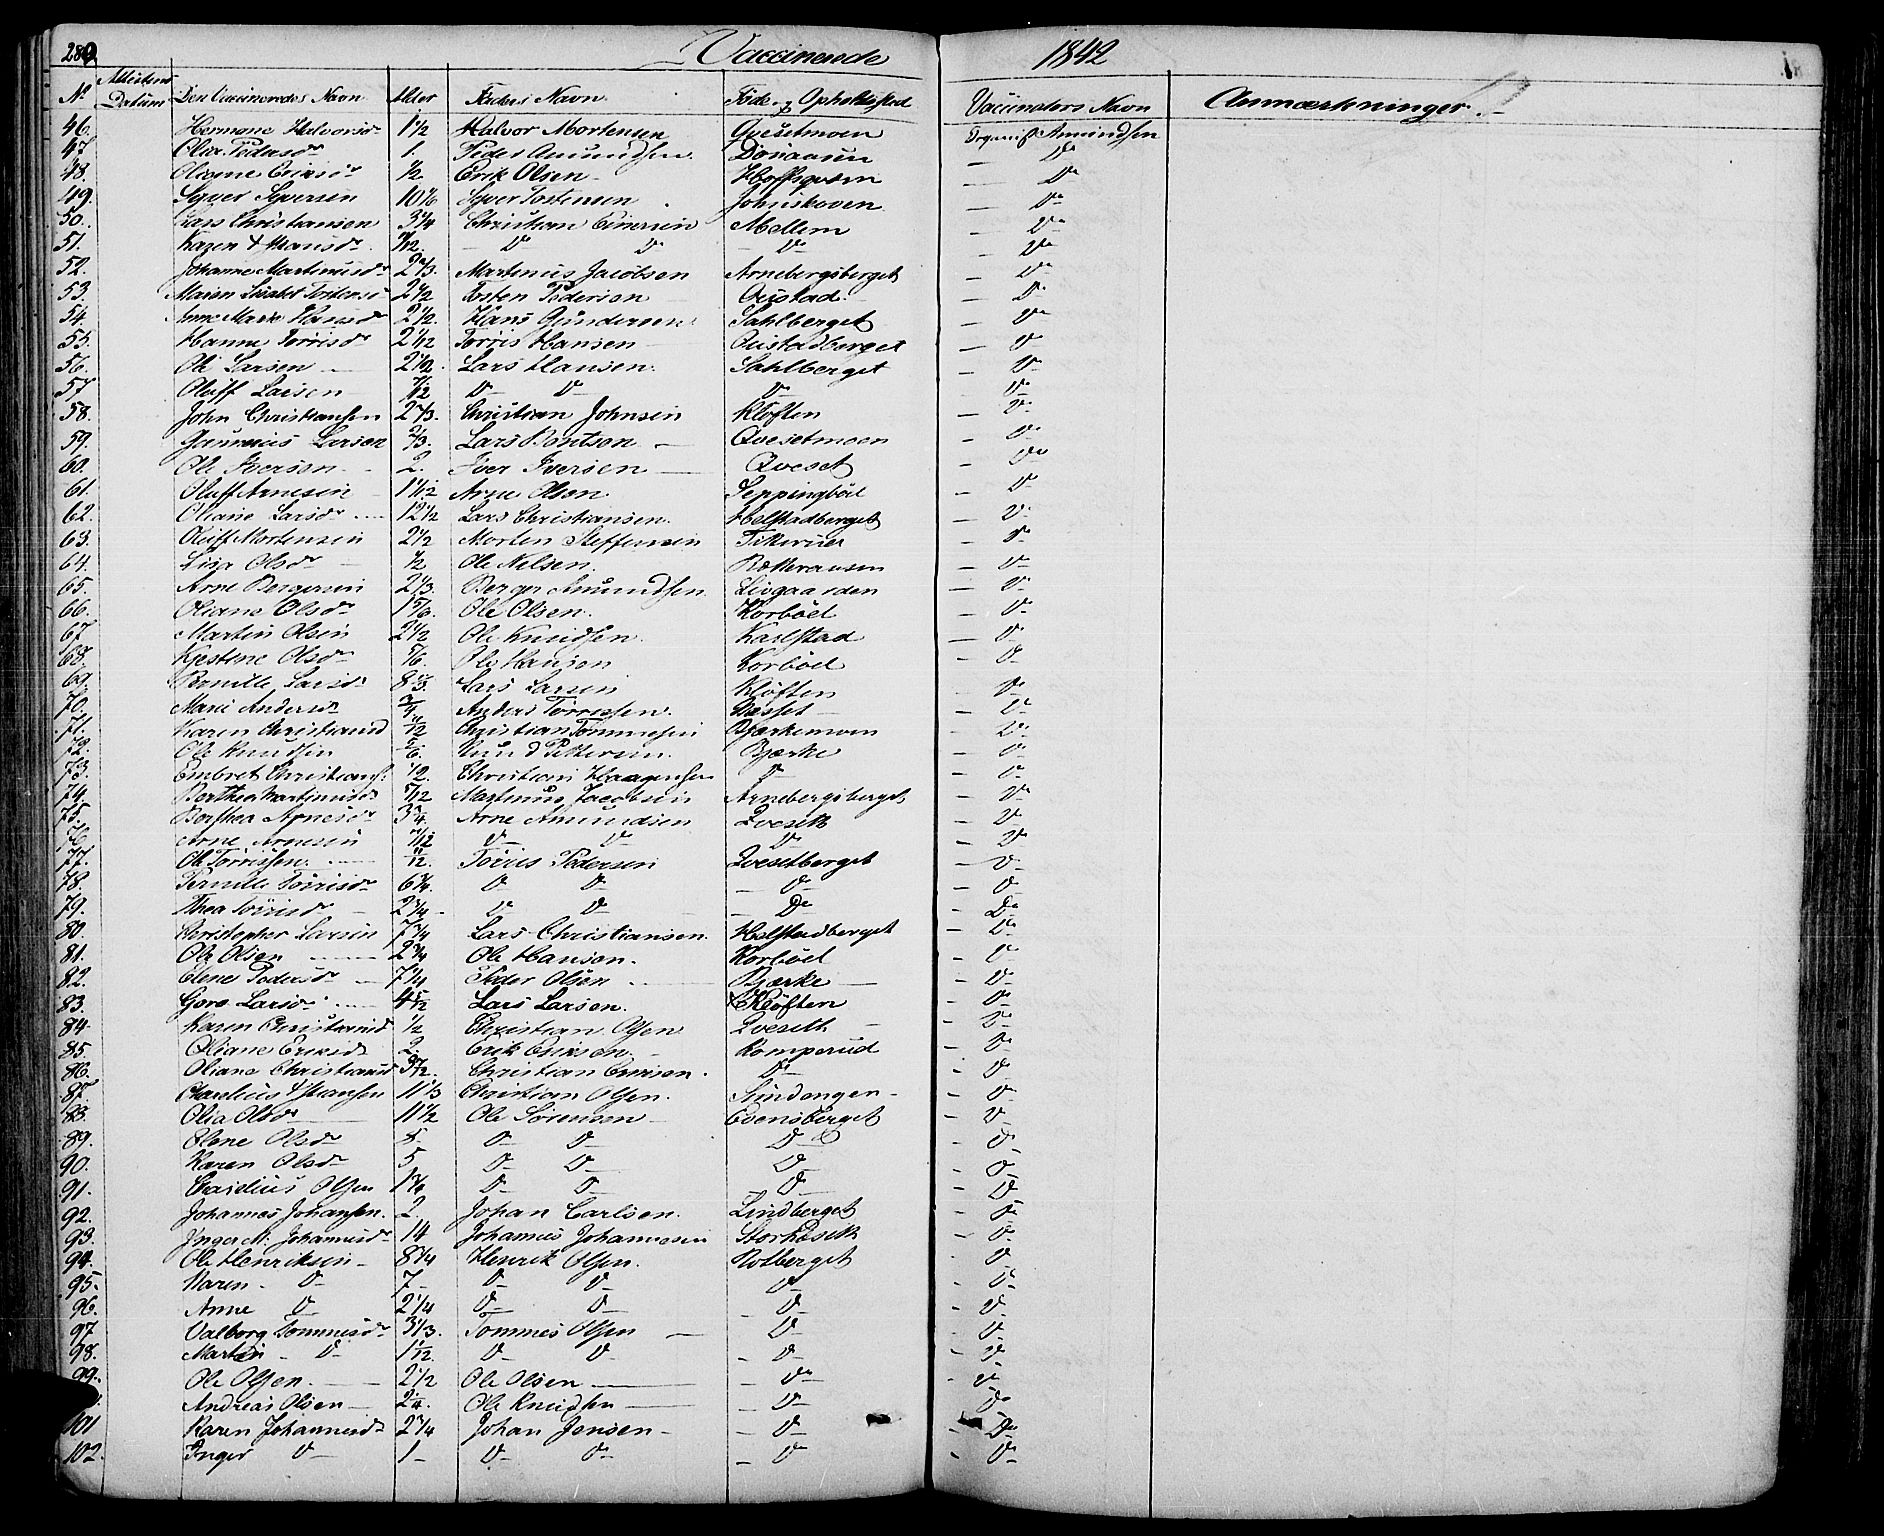 280 Vaccinerede 1842
No Attestens Datum Den Vaccineredes Navn Alder Faders Navn Føde- og Opholdssted Vaccineurs Navn Anmærkninger.
46. Hermane Halvorsdr 1 1/2 Halvor Mortensen Qvesetmoen Organist Amundsen
47. Olia Pedersdr 1. Peder Amundsen Do
48. Oliane Ericsdr 1/2 Erik Olsen Hoffsqværn Do
49. Syver Syversen 10 1/6 Syver Torstensen Do
50. Lars Christiansen 3 1/4 Christian Einersen Mellem Do
51. Karen Do Do Do Do
52. Johanne Martinusdr 2 2/3 Martinus Jacobsen Arnebergsberget Do
53. Maren Lisabet Torstensd 2 1/2 Torsten Pedersen Oustad Do
54. Anne Marie Hansdr 2 1/2 Hans Gundersen Sahlberget Do
55. Hanne Torrisdr 2 1/12 Torris Hansen Oustadberget Do
56. Ole Larsen Lars Hansen Sahlberget Do
57. Oluff Larsen 7/12 Do Do Do Do
58. John Christiansen 2 2/3 Christian Johnsen Kløften Do
59. Gunnerius Larsen 2/3 Lars Bentsen Qvesetmoen Do
60. Ole Iversen 2. Iver Iversen Qveset Do
61. Oluff Arnesen 1 11/12 Arne Olsen Seppingböel Do
62. Oliane Larsdr 12 1/2 Lars Christiansen Helstadberget Do
63. Oluff Mortensen 2 1/2 Morten Steffensen Do
64. Lisa Olsdr 1/2 Ole Nelsen Do
65. Arne Bergersen 2 1/3 Berger Amundsen Livgaarden Do
66. Oliane Olsdr 1 5/6 Ole Olsen Korböel Do
67. Martin Olsen 2 1/2 Ole Knudsen Karlstad Do
68. Kjestine Olsdr 5/6 Ole Hansen Korböel Do
69. Pernille Larsdr 8 1/3 Lars Larsen Kløften Do
70. Marie Andersdr 3/4 Anders Torrissen Do
71. Karen Christiansd Christian Tommesen Bjerkemoen Do
72. Ole Knudsen 5/6 Knud Pettersen Bjerke Do
73. Embret Christians. 1/2 Christian Haagensen Do Do
74. Berthea Martinusdr 5/12 Martinus Jacobsen Arnebergsberget Do
75. Berthea Arnesdr 3 3/4 Arne Amundsen Qveseth Do
76. Arne Arnesen 7/12 Do Do Do Do
77. Ole Torrissen Torris Pedersen Qvesetberget Do
78. Pernille Torrisdr 6 3/4 Do Do Do Do
79. Thea Torrisdr 2 3/4 Do Do Do Do
80. Christopher Larsen 7 3/4 Lars Christiansen Helstadberget Do
81. Ole Olsen 2 3/4 Ole Hansen Korböel Do
82. Elene Pedersdr 7 1/4 Peder Olsen Bjerke Do
83. Goro Larsdr 4 5/12 Lars Larsen Kløften Do
84. Karen Christiansd 1/2 Christian Olsen Qveseth Do
85. Oliane Ericsd 2. Erik Eriksen Komperud Do
86. Oliane Christiansd Christian Einersen Do Do
87. 11 1/3 Christian Olsen Sundengen Do
88. Olia Olsdr 11 1/2 Ole Sörensen Evensberget Do
89. Elene Olsdr 8 Do Do Do Do
90. Karen Olsdr 5 Do Do Do Do
91. Olsen 1 3/4 Do Do Do Do
92. Johannes Johansen. 2. Johan Carlsen Lindberget Do
93. Inger M. Johannesdr 14 Johannes Johannesen Do
94. Ole Henriksen 8 1/4 Henrik Olsen Rotberget Do
95. Karen Do 7 Do Do Do Do
96. Anne Do 2 1/4 Do Do Do Do
97. Valborg Tommesdr 3 1/3. Tommes Olsen Do Do
98. Martin Do 1 1/12 Do Do Do Do
99. Ole Olsen 2 1/2 Ole Olsen Do Do
Andreas Olsen 2 1/4 Ole Knudsen Do Do
101 Karen Johannesdr 2 3/4 Johan Jensen Do Do
102. Inger Do 1 Do Do Do Do